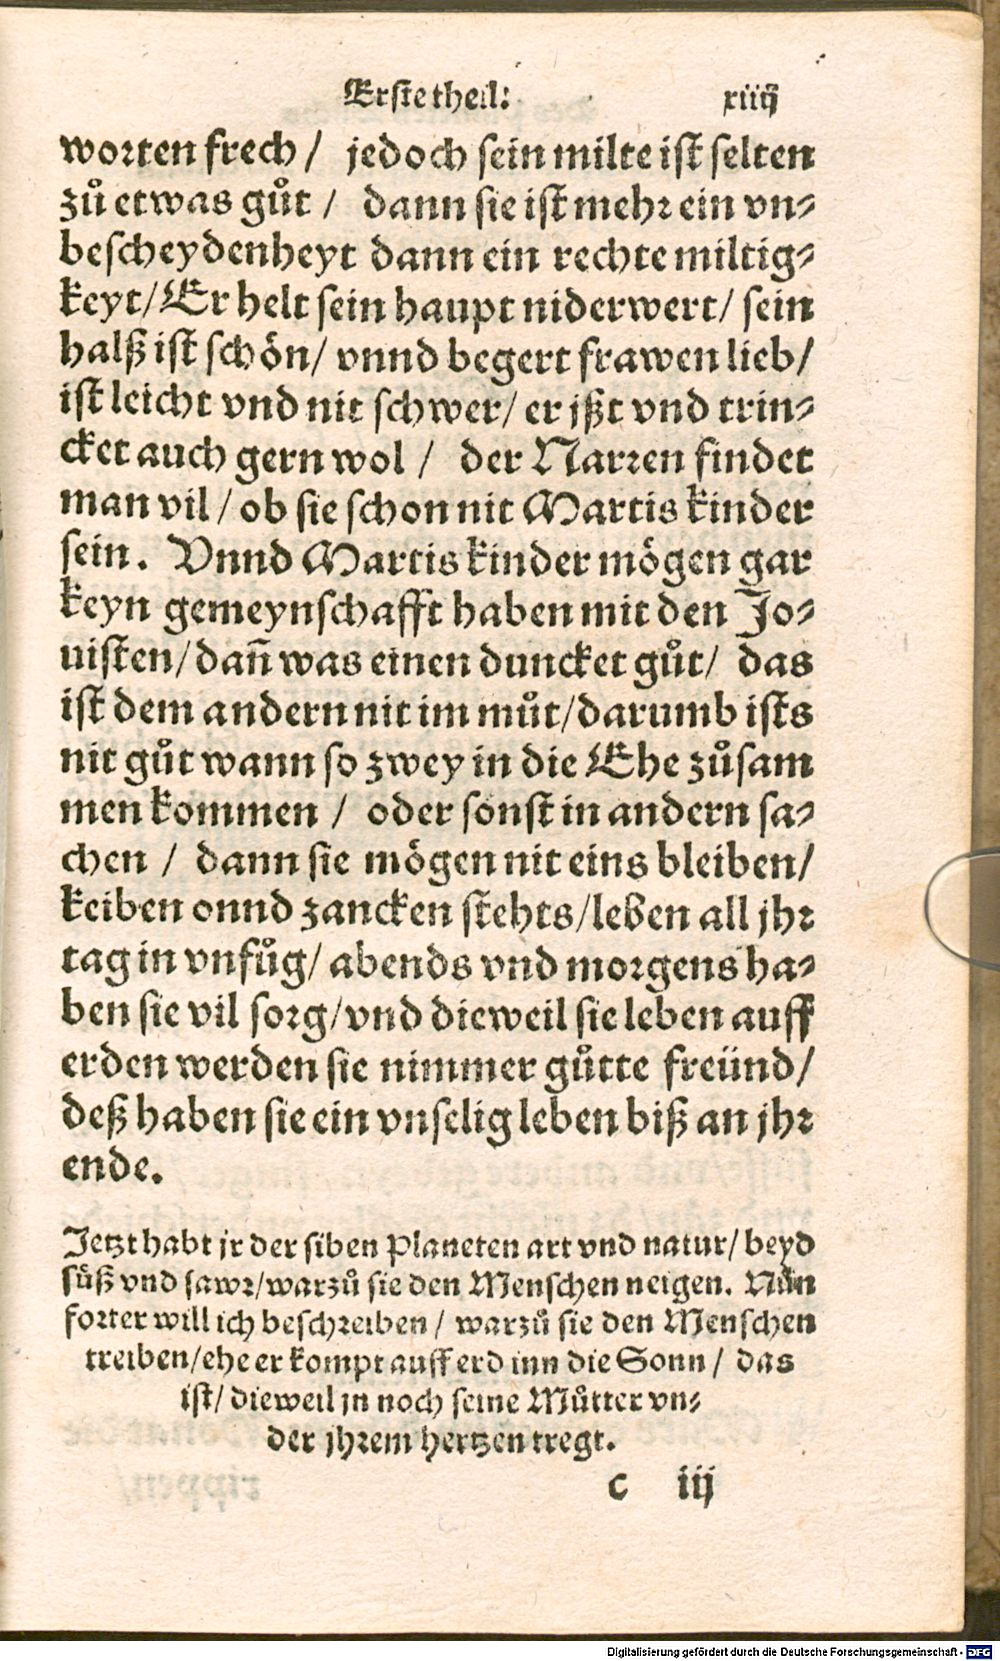 Erste theil: xiiij
worten frech / jedoch sein milte ist selten
zuͦ etwas guͦt / dann sie ist mehr ein vn⸗
bescheydenheyt dann ein rechte miltig⸗
keyt/ Er helt sein haupt niderwert/ sein
halß ist schoͤn/ vnnd begert frawen lieb/
ist leicht vnd nit schwer/ er jßt vnd trin⸗
cket auch gern wol / der Narren findet
man vil / ob sie schon nit Martis kinder
sein. Vnnd Martis kinder moͤgen gar
keyn gemeynschafft haben mit den Jo⸗
uisten/ dañ was einen duncket guͦt/ das
ist dem andern nit im muͦt/ darumb ists
nit guͦt wann so zwey in die Ehe zuͦsam
men kommen / oder sonst in andern sa⸗
chen / dann sie moͤgen nit eins bleiben/
keiben onnd zancken stehts/ leben all jhr
tag in vnfuͦg/ abends vnd morgens ha⸗
ben sie vil sorg/ vnd dieweil sie leben auff
erden werden sie nimmer guͦtte freünd/
deß haben sie ein vnselig leben biß an jhr
ende.
Jetzt habt jr der siben Planeten art vnd natur/ beyd
suͤß vnd sawr/ warzuͦ sie den Menschen neigen. Nuͦn
forter will ich beschreiben / warzuͦ sie den Menschen
treiben/ ehe er kompt auff erd inn die Sonn / das
ist/ dieweil jn noch seine Muͦtter vn⸗
der jhrem hertzen tregt.
c iij
Digitalisierung gefördert durch die Deutsche Forschungsgemeinschaft - DFG